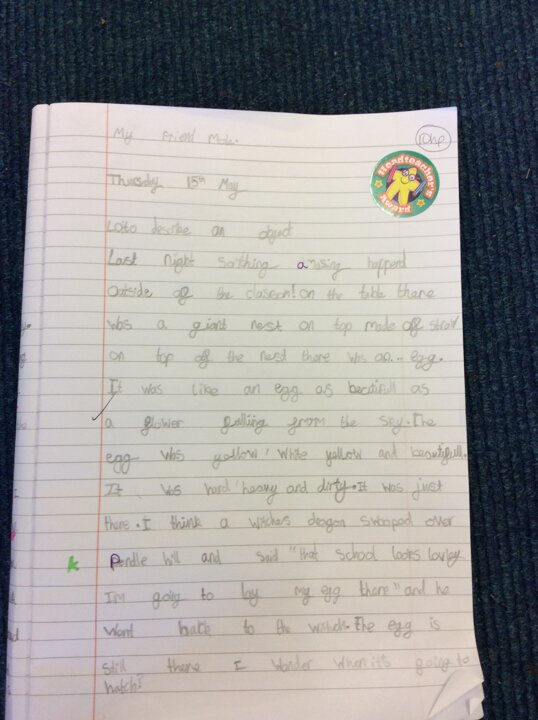 10hp
My friend Mole.
Headteacher's
Award
Thursday 15th May
Loto describe an object
Last Night somthing amasing happend
Outside of the classroom! on the table there
was a giant nest on top made of straw
on top of the nest there was an... egg.
It was like an egg as beatifull as
a flower falling from the sky. The
egg was yellow, white yellow and beautifull.
It was hard, heavy and dirty. It was just
there. I think a witches dragon swooped over
k Pendle hill and said "that school looks lovley
I'm going to lay my egg there" and he
want back to the witches. The egg is
still there I wonder when it's going to
hatch?